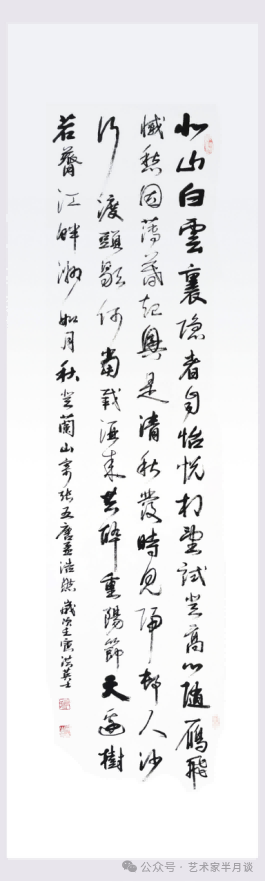 北山白雲裏隐者自怡悦相望試登高心随鴈飛
滅愁因薄暮起興是清秋發時見歸邨人沙
行渡頭歇何當載酒来共醉重陽節天邊樹
若薺江畔洲如月秋登蘭山寄張五唐孟浩然歲次壬寅
公众号 · 艺术家半月谈